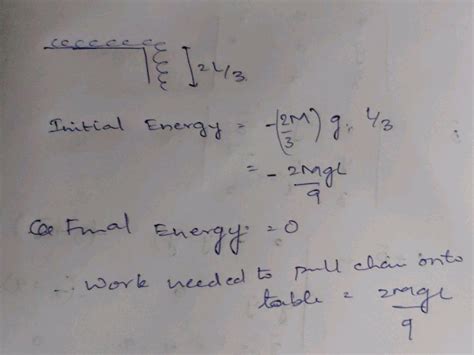 = 2L/3
Initial Energy = -(2M/3) g. L/3
= - 2MgL/9
Final Energy = 0
∴ Work needed to pull chain onto
table = 2MgL/9